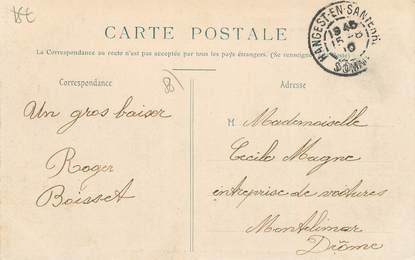 CARTE POSTALE
La Correspondance au recto n'est pas acceptée par tous les pays étrangers. (Se renseigner
HANGEST-EN-SANTERRE
SOMME
Correspondance
Adresse
Un gros baiser
Roger
Boisset
M Mademoiselle
Cecile Magne
entreprise de voitures
Montelimar
Drôme